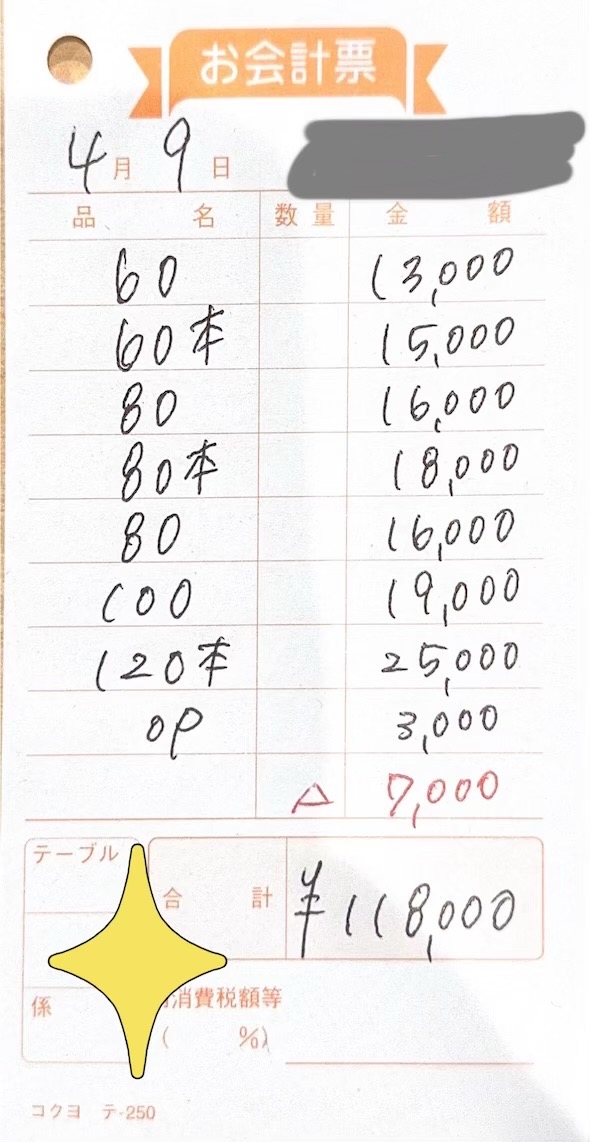 お会計票
4月9日
品名 数量 金額
60 13,000
60本 15,000
80 16,000
80本 18,000
80 16,000
100 19,000
120本 25,000
OP 3,000
△ 7,000
テーブル
合計 ¥118,000
係
消費税額等
( %)
コクヨ テ-250